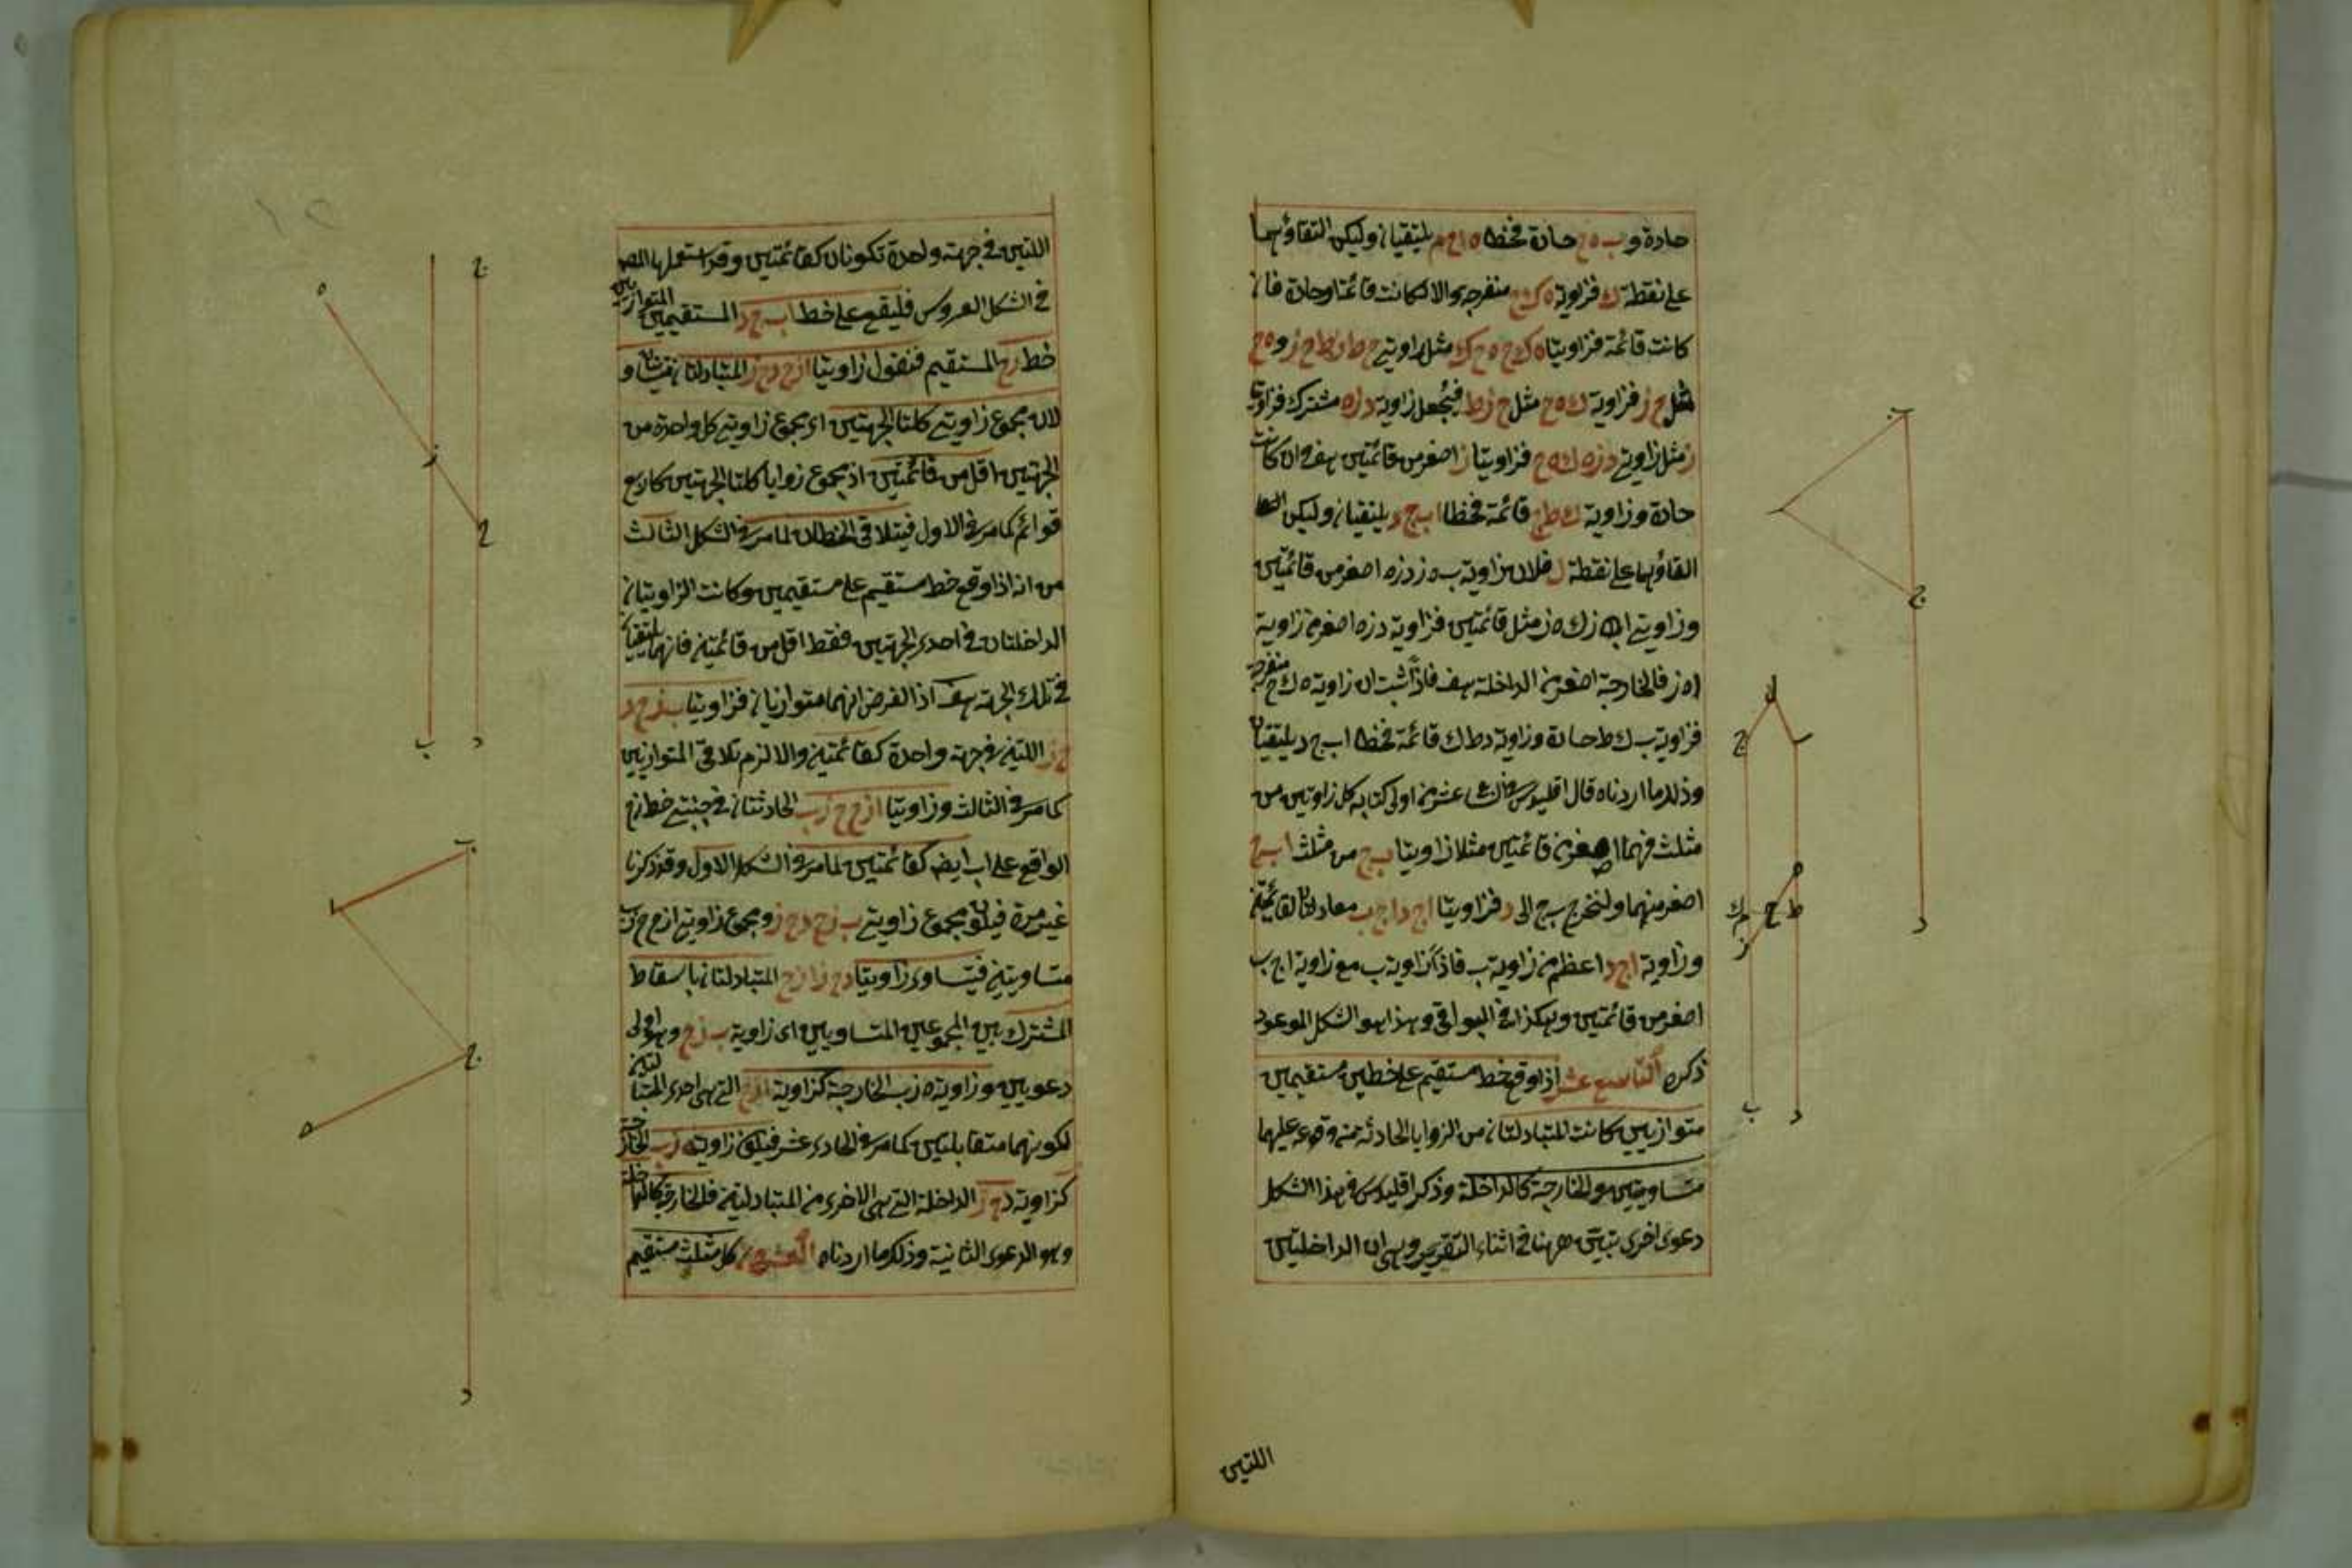 حادة و ب ه ح حادة فخطا ه ا ح م يلتقيان وليكن التقاؤهما
على نقطة ك فزاوية ه ك ح منفرجة والا لكانت قائمة او حادة فان
كانت قائمة فزاويتا ه ك ح ه ح ك مثل زاويتي
مثل ح ز فزاوية ك ه ح مثل ح ز ط فيجعل زاوية د ز ه مشترك فزاويتا
ز مثل زاويتي د ز ه ك ه ح فزاويتا ز اصغر من قائمتين هف وان كانت
حادة وزاوية ك ط ح قائمة فخطا ا ب ج د يلتقيان وليكن
القاؤهما على نقطة ل فلان زاوية ب ه ز د ز ه اصغر من قائمتين
وزاويتي ا ه ز ك ه ز مثل قائمتين فزاوية د ز ه اصغر من زاوية
ا ه ز فالخارجة اصغر من الداخلة هف فاذا ثبت ان زاوية ه ك ح منفرجة
فزاوية ب ك ط حادة وزاوية د ط ك قائمة فخطا ا ب ج د يلتقيان
وذلك ما اردناه قال اقليدس في عشر من اولى كتابه كل زاويتين من
مثلث فهما اصغر من قائمتين مثلا زاويتا ب ج من مثلث ا ب ج
اصغر منهما ولنخرج ب ج الى د فزاويتا ا ج د ا ج ب معادلتا لقائمتين
وزاوية ا ج د اعظم من زاوية ب فاذا زاوية ب مع زاوية ا ج ب
اصغر من قائمتين وهكذا في البواقي وهذا هو الشكل الموعود
ذكره التاسع عشر اذا وقع خط مستقيم على خطين مستقيمين
متوازيين كانت المتبادلتان من الزوايا الحادثة من وقوعه عليهما
متساويتين والخارجة كالداخلة وذكر اقليدس في هذا الشكل
دعوى اخرى تبتين ههنا في اثناء التقرير وهي ان الداخلتين
اللتين
اللتين في جهة واحدة تكونان كقائمتين وقد استعملها المصـ
في الشكل العروس فليقع على خطا ا ب ج د المستقيمين المتوازيين
خط ز ح المستقيم فنقول زاويتا ا ز ح د ح ز المتبادلتان و
لان مجموع زاويتي كلتا الجهتين اى مجموع زاويتي كل واحدة من
الجهتين اقل من قائمتين اذ مجموع زوايا كلتا الجهتين كاربع
قوائم كما مر في الاول فيتلاقى الخطان لما مر في الشكل الثالث
من انه اذا وقع خط مستقيم على مستقيمين وكانت الزاويتان
الداخلتان في احدى الجهتين فقط اقل من قائمتين فانهما يلتقيان
في تلك الجهة هف اذ الفرض انهما متوازيان فزاويتا ب ز ح د
ح ز اللتين في جهة واحدة كقائمتين والا لزم تلاقى المتوازيين
كما مر في الثالث وزاويتا ا ز ح ح ز ب الحادثتان في جنبتي خط ز ح
الواقع على ا ب ايضا كقائمتين لما مر في الشكل الاول وقد ذكرنا
غير مرة فيكون مجموع زاويتي ب ز ح د ح ز ومجموع زاويتي ا ز ح ح ز ب
متساويتين فيتساوى زاويتا د ح ز ا ز ح المتبادلتان باسقاط
المشترك بين المجموعين المتساويين اى زاوية ب ز ح وهو اولى
دعويين وزاوية ه ز ب الخارجة كزاوية ا ز ح التي هي احدى المتبادلتين
لكونهما متقابلتين كما مر في الحادى عشر فيكون زاوية ه ز ب الخارجة
كزاوية د ح ز الداخلة التي هي الاخرى من المتبادلتين فالخارجة كالداخلة
وهو الدعوى الثانية وذلك ما اردناه العشرون كل مثلث مستقيم